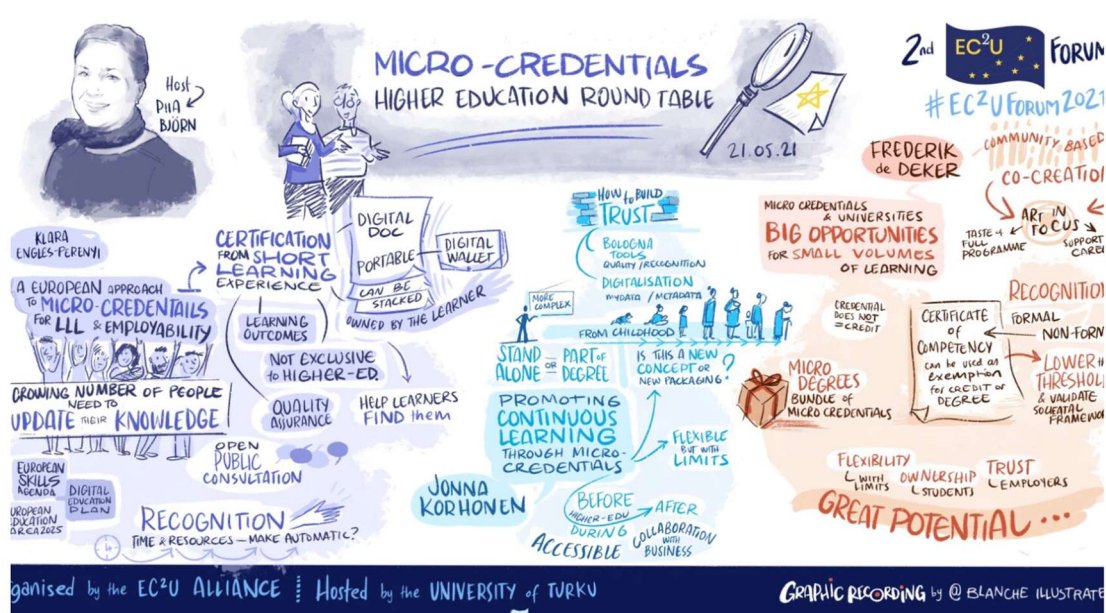 Host
PIIA
BJÖRN
MICRO-CREDENTIALS
HIGHER EDUCATION ROUND TABLE
21.05.21
2nd EC²U FORUM
#EC²UFORUM2021
KLARA
ENGLES-PERENYI
A EUROPEAN APPROACH
TO MICRO-CREDENTAILS
FOR LLL & EMPLOYABILITY
GROWING NUMBER OF PEOPLE
NEED TO
UPDATE THEIR KNOWLEDGE
EUROPEAN
SKILLS
AGENDA
DIGITAL
EDUCATION
PLAN
EUROPEAN
EDUCATION
AREA 2025
CERTIFICATION
FROM SHORT
LEARNING
EXPERIENCE
LEARNING
OUTCOMES
NOT EXCLUSIVE
to HIGHER-ED.
QUALITY
ASSURANCE
OPEN
PUBLIC
CONSULTATION
RECOGNITION
TIME & RESOURCES - MAKE AUTOMATIC?
DIGITAL
DOC
PORTABLE
DIGITAL
WALLET
CAN BE
STACKED
OWNED BY THE LEARNER
HELP LEARNERS
FIND them
HOW to BUILD
TRUST
BOLOGNA
TOOLS
QUALITY/RECOGNITION
DIGITALISATION
MYDATA / METADATA
MORE
COMPLEX
FROM CHILDHOOD
STAND
ALONE
OR
PART OF
DEGREE
IS THIS A NEW
CONCEPT or
NEW PACKAGING?
PROMOTING
CONTINUOUS
LEARNING
THROUGH MICRO-
CREDENTIALS
FLEXIBLE
BUT WITH
LIMITS
JONNA
KORHONEN
BEFORE
HIGHER-EDU
DURING
AFTER
ACCESSIBLE
COLLABORATION
WITH
BUSINESS
FREDERIK
de DEKER
COMMUNITY BASED
CO-CREATION
ART IN
FOCUS
TASTE of
FULL
PROGRAMME
SUPPORT
CAREE
MICRO CREDENTIALS
& UNIVERSITIES
BIG OPPORTUNITIES
FOR SMALL VOLUMES
OF LEARNING
CREDENTIAL
DOES NOT
= CREDIT
CERTIFICATE
of
COMPETENCY
can be used as
exemption
for CREDIT or
DEGREE
RECOGNITION
FORMAL
NON-FORM
LOWER
THRESHOLD
& VALIDATE
SOCIETAL
FRAMEWOR
MICRO
DEGREES
BUNDLE of
MICRO CREDENTIALS
FLEXIBILITY
WITH
LIMITS
OWNERSHIP
STUDENTS
TRUST
EMPLOYERS
GREAT POTENTIAL...
ganised by the EC²U ALLIANCE Hosted by the UNIVERSITY of TURKU
GRAPHIC RECORDING by @ BLANCHE ILLUSTRATE